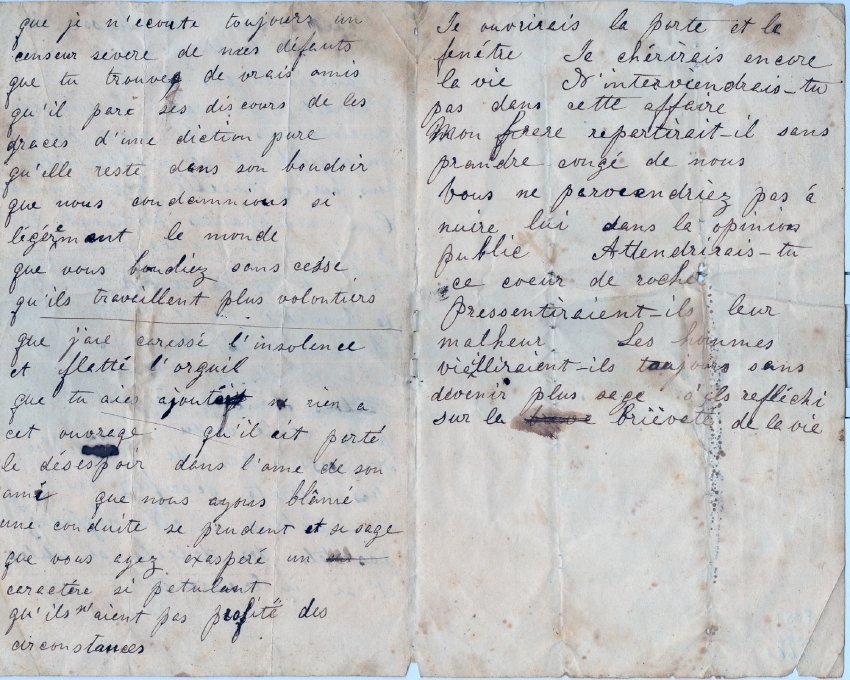 que je n'ecoute toujours un
censeur sevère de mes défauts
que tu trouves de vrais amis
qu'il pare ses discours de les
graces d'une diction pure
qu'elle reste dans son boudoir
que nous condamnions si
légérmant le monde
que vous boudiez sans cesse
qu'ils travaillent plus volontiers
que j'aie caressé l'insolence
et flatté l'orguil
que tu aies ajouté rien a
cet ouvrage qu'il ait porté
le désespoir dans l'ame de son
ami que nous ayons blâmé
une conduite se prudent et si sage
que vous ayez exaspéré un
caractère si petulant
qu'ils n'aient pas profité des
circonstances
Je ouvrirais la porte et la
fenêtre Je chérirais encore
la vie N'interviendrais-tu
pas dans cette affaire
Mon frere repartirait-il sans
prandre congé de nous
Vous ne parviendriez pas à
nuire lui dans la opinion
public Attendrirais-tu
ce coeur de roche
Pressentiraient-ils leur
malheur Les hommes
viélliraient-ils toujours sans
devenir plus sage s'ils refléchi
sur la brièveté de la vie